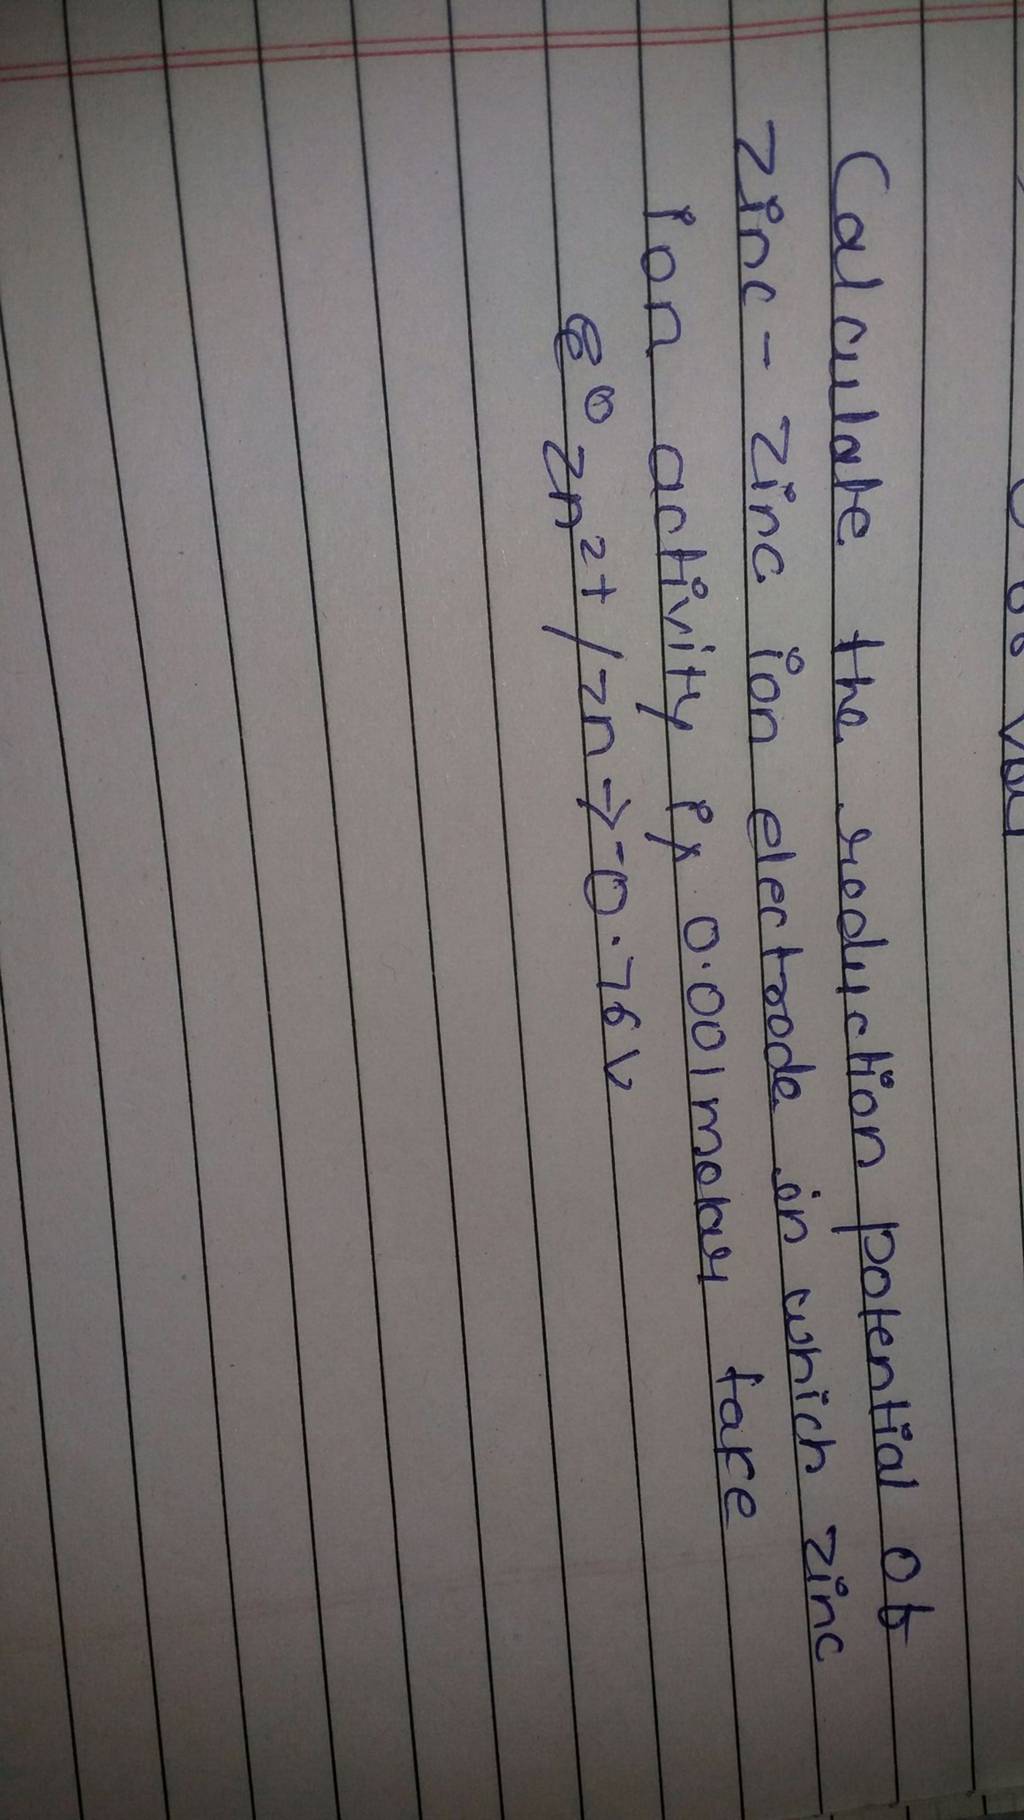 Calculate the reduction potential of
zinc - zinc ion electrode in which zinc
ion activity is 0.001 molar take
E⁰ Zn²⁺ / Zn → -0.76 V